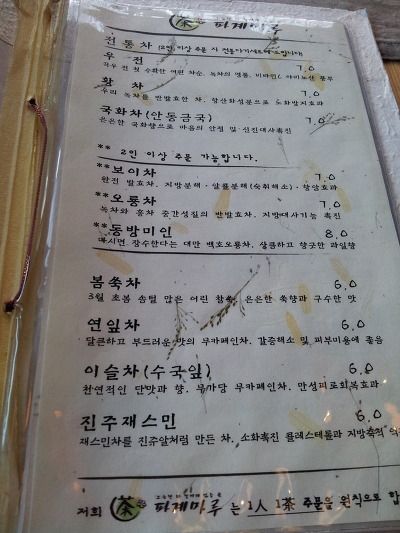 茶 파계마루
전통차 (2인 이상 주문 시 전통다기세트에
우전 7.0
곡우 전 첫 수확한 여린 차순. 녹차의 명품. 비타민C 아미노산 풍부
황차 7.0
우리 녹차를 반발효한 차. 항산화성분으로 노화방지효과
국화차(안동금국) 7.0
은은한 국화향으로 마음의 안정 및 신진대사촉진
** 2인 이상 주문 가능합니다.
**보이차 7.0
완전 발효차. 지방분해·알콜분해(숙취해소)·항암효과
**오룡차 7.0
녹차와 홍차 중간성질의 반발효차. 지방대사기능 촉진
**동방미인 8.0
마시면 장수한다는 대만 백호오룡차. 달콤하고 향긋한 과일향
봄쑥차 6.0
3월 초봄 솜털 많은 어린 참쑥. 은은한 쑥향과 구수한 맛
연잎차 6.0
달콤하고 부드러운 맛의 무카페인차. 갈증해소 및 피부미용에 좋음
이슬차(수국잎) 6.0
천연적인 단맛과 향. 무가당 무카페인차. 만성피로회복효과
진주재스민 6.0
재스민차를 진쥬알처럼 만든 차. 소화촉진 콜레스테롤과 지방축적
저희 茶 파계마루 는 1人 1茶 주문을 원칙으로 합